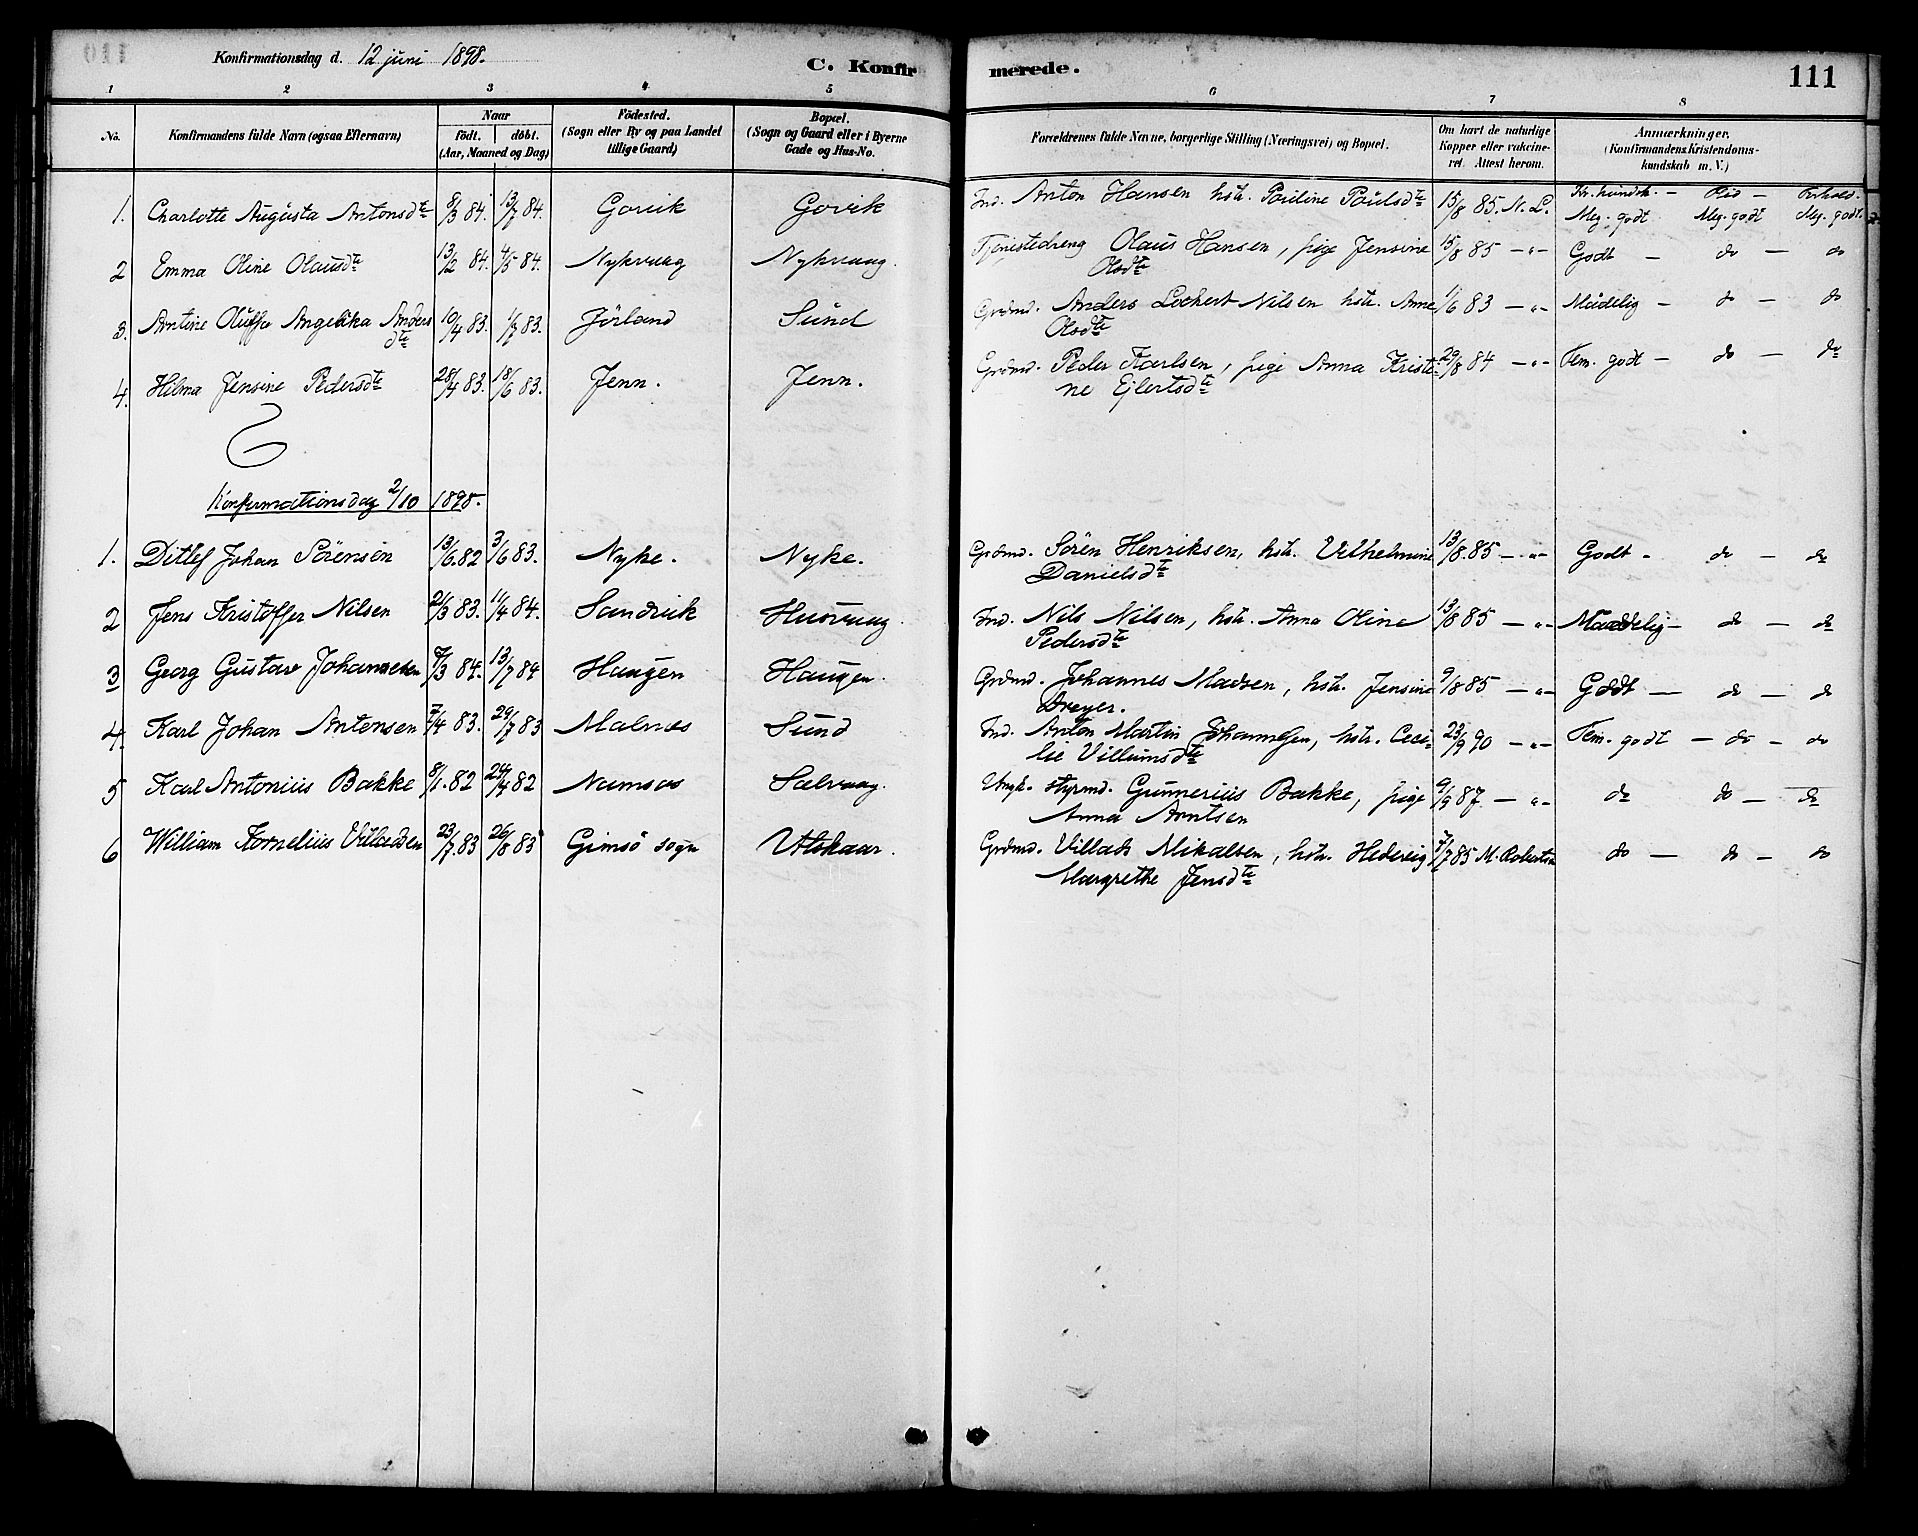 Konfirmationsdag d. 12 juni 1898.
C. Konfirmerede.
111
1 2 3 4 5 6 7 8
No. Konfirmandens fulde Navn (ogsaa Efternavn) Naar födt. döbt. (Aar, Maaned og Dag) Födested. (Sogn eller By og paa Landet tillige Gaard) Bopæl. (Sogn og Gaard eller i Byerne Gade og Hus-No. Forældrenes fulde Navne, borgerlige Stilling (Næringsvei) og Bopæl. Om havt de naturlige Kopper eller vakcineret. Attest herom. Anmærkninger. (Konfirmandens Kristendomskundskab m. V.)
1. Charlotte Augusta Antonsdte 8/3 84. 13/7 84. Govik Govik Ind. Anton Hansen hstr. Pauline Paulsdte 15/8 85. N. L. Kr. kundsk. — Flid — Forhold.
Meg. godt Meg. godt Meg. godt
2 Emma Oline Olausdte 13/2 84. 4/5 84. Nykvaag Nykvaag. Tjenestedreng Olaus Hansen, pige Jensine 15/8 85 — " — Godt — do — do
Olsdte
3. Antine Oluffa Angelika Anders 10/4 83. 1/7 83. Jörland Sund Grdmd. Anders Lockert Nilsen hstr. Anne 1/6 83 — " — Maadelig — do — do
dte Olsdte
4. Hilma Jensine Pedersdte 28/4 83. 18/6 83. Jenn. Jenn. Grdmd. Peder Karlsen, pige Anna Kristi- 29/8 84 — " — Tem. godt — do — do
ne Ejlertsdte
Konfirmationsdag 2/10 1898.
1. Ditlef Johan Sörensen 13/6 82 3/6 83. Nyke. Nyke. Grdmd. Sören Henriksen, hstr. Vilhelmine 13/8. 85 — " — Godt — do — do
Danielsdte
2 Jens Kristoffer Nilsen 2/3 83. 11/4 84. Sandvik Husvaag. Ind. Nils Nilsen, hstr. Anna Oline 13/8 85 — " — Maadelig — do — do
Pedersdte
3 Georg Gustav Johannesen 7/3 84. 13/7 84 Haugen Haugen. Grdmd. Johannes Madsen, hstr. Jensine 9/8 85 — " — Godt — do — do
Dreyer.
4. Karl Johan Antonsen 7/4 83. 29/7 83 Malnes Sund Ind. Anton Martin Johannesen, hstr. Ceci- 23/9 90 — " — Tem. godt — do — do
lie Villumsdte
5 Karl Antonius Bakke 8/1. 82 24/4 82 Namsos Sælvaag. Ungk. styrmd. Gunnerius Bakke, pige 9/9 87 — " — do do — do
Anna Arntsen
6 William Kornelius Villadsen 23/7 83 26/8 83 Gimsö sogn Utskaar. Grdmd. Villads Mikalsen, hstr. Hedevig 7/7 85 M. Robertson do — do — do
Margrethe Jensdte